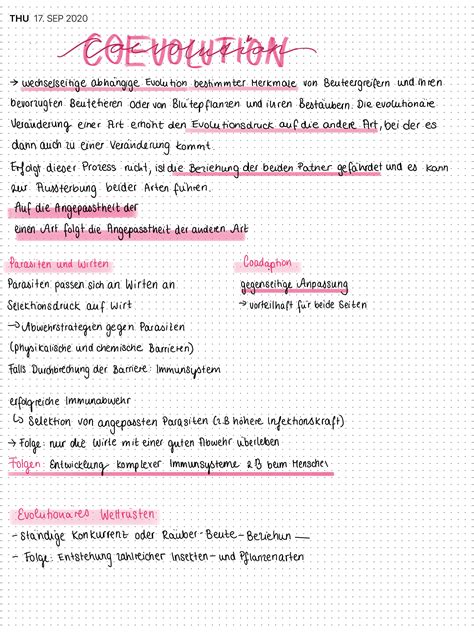 THU 17. SEP 2020
COEVOLUTION
coevolution
→ wechselseitige abhängige Evolution bestimmter Merkmale von Beutegreifern und ihren
bevorzugten Beutetieren oder von Blütepflanzen und ihren Bestäubern. Die evolutionäre
Veränderung einer Art erhöht den Evolutionsdruck auf die andere Art, bei der es
dann auch zu einer Veränderung kommt.
Erfolgt dieser Prozess nicht, ist die Beziehung der beiden Partner gefährdet und es kann
zur Ausserbung beider Arten führen.
Auf die Angepasstheit der
einen Art folgt die Angepasstheit der anderen Art
Parasiten und Wirten
Parasiten passen sich an Wirten an
Selektionsdruck auf Wirt
→ Abwehrstrategien gegen Parasiten
(physikalische und chemische Barrieren)
Falls Durchbrechung der Barriere: Immunsystem
Coadaption
gegenseitige Anpassung
→ vorteilhaft für beide Seiten
erfolgreiche Immunabwehr
↳ Selektion von angepassten Parasiten (z.B höhere Infektionskraft)
→ Folge: nur die Wirte mit einer guten Abwehr überleben
Folgen: Entwicklung komplexer Immunsysteme z.B beim Menschen
Evolutionäres Wettrüsten
- ständige Konkurrent oder Räuber-Beute-Beziehun
- Folge: Entstehung zahlreicher Insekten- und Pflanzenarten